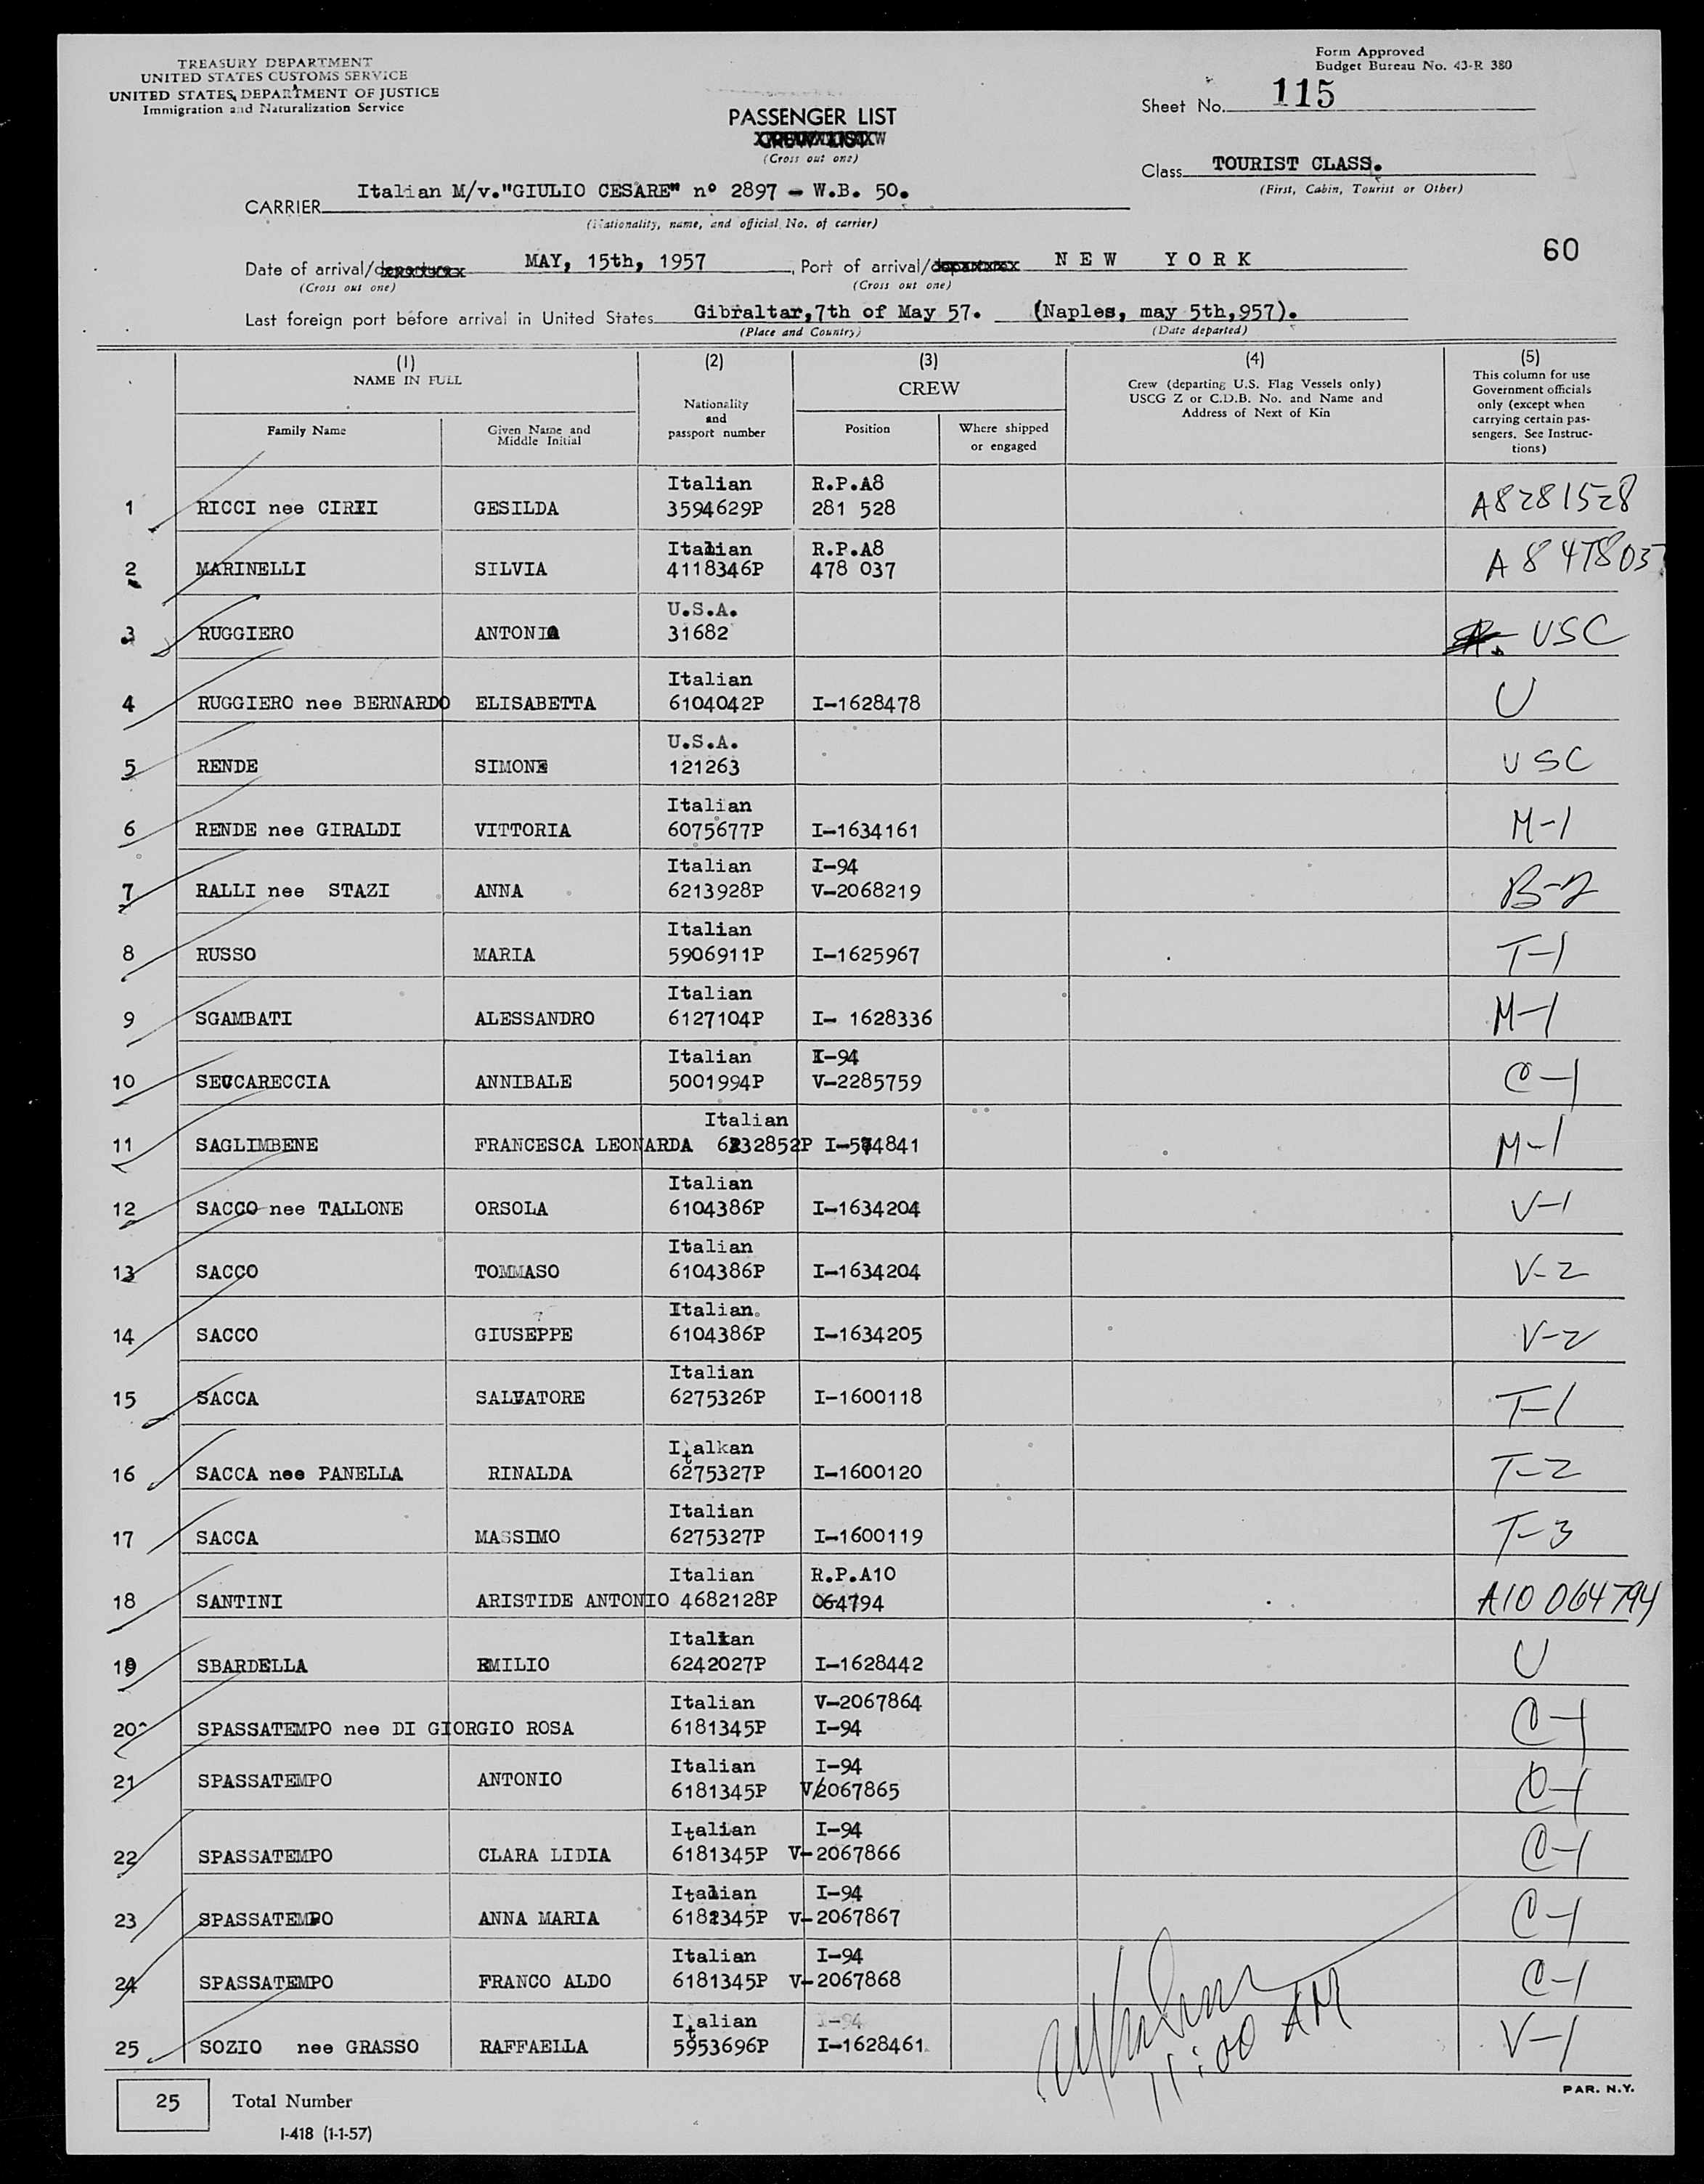 TREASURY DEPARTMENT
UNITED STATES CUSTOMS SERVICE
UNITED STATES DEPARTMENT OF JUSTICE
Immigration and Naturalization Service
Form Approved
Budget Bureau No. 43-R 380
Sheet No. 115
PASSENGER LIST
CREW LIST
(Cross out one)
Class TOURIST CLASS.
(First, Cabin, Tourist or Other)
CARRIER Italian M/v."GIULIO CESARE" nº 2897 - W.B. 50.
(Nationality, name, and official No. of carrier)
Date of arrival/departure MAY, 15th, 1957, Port of arrival/departure NEW YORK 60
(Cross out one) (Cross out one)
Last foreign port before arrival in United States Gibraltar,7th of May 57. (Naples, may 5th,957).
(Place and Country) (Date departed)
(1) (2) (3) (4) (5)
NAME IN FULL
Family Name
Given Name and Middle Initial
Nationality and passport number
CREW
Position
Where shipped or engaged
Crew (departing U.S. Flag Vessels only)
USCG Z or C.D.B. No. and Name and
Address of Next of Kin
This column for use
Government officials
only (except when
carrying certain pas-
sengers. See Instruc-
tions)
Italian R.P.A8
1 RICCI nee CIRZI GESILDA 3594629P 281 528 A8281528
Italian R.P.A8
2 MARINELLI SILVIA 4118346P 478 037 A 8 478037
U.S.A.
3 RUGGIERO 31682 USC
Italian
4 RUGGIERO nee BERNARDO ELISABETTA 6104042P I-1628478 U
U.S.A.
5 RENDE SIMONE 121263 USC
Italian
6 RENDE nee GIRALDI VITTORIA 6075677P I-1634161 M-1
Italian I-94
7 RALLI nee STAZI ANNA 6213928P V-2068219 B-2
Italian
8 RUSSO MARIA 5906911P I-1625967 T-1
Italian
9 SGAMBATI ALESSANDRO 6127104P I- 1628336 M-1
Italian I-94
10 SECCARECCIA ANNIBALE 5001994P V-2285759 C-1
Italian
11 SAGLIMBENE FRANCESCA LEONARDA 6232852P M-1
Italian
12 SACCO nee TALLONE ORSOLA 6104386P I-1634204 V-1
Italian
13 SACCO TOMMASO 6104386P I-1634204 V-2
Italian.
14 SACCO GIUSEPPE 6104386P I-1634205 V-2
Italian
15 SACCA SALVATORE 6275326P I-1600118 T-1
Italkan
16 SACCA nee PANELLA RINALDA 6275327P I-1600120 T-2
Italian
17 SACCA MASSIMO 6275327P I-1600119 T-3
Italian R.P.A10
18 SANTINI ARISTIDE ANTONIO 4682128P 064794 A10 064794
Italian
19 SBARDELLA EMILIO 6242027P I-1628442 U
Italian V-2067864
20 SPASSATEMPO nee DI GIORGIO ROSA 6181345P I-94 C-1
Italian I-94
21 SPASSATEMPO ANTONIO 6181345P V/2067865 C-1
Italian I-94
22 SPASSATEMPO CLARA LIDIA 6181345P V-2067866 C-1
Italian I-94
23 SPASSATEMPO ANNA MARIA 6181345P V-2067867 C-1
Italian I-94
24 SPASSATEMPO FRANCO ALDO 6181345P V-2067868 C-1
Italian I-94
25 SOZIO nee GRASSO RAFFAELLA 5953696P I-1628461 V-1
11:00 AM
25 Total Number
PAR. N.Y.
I-418 (1-1-57)